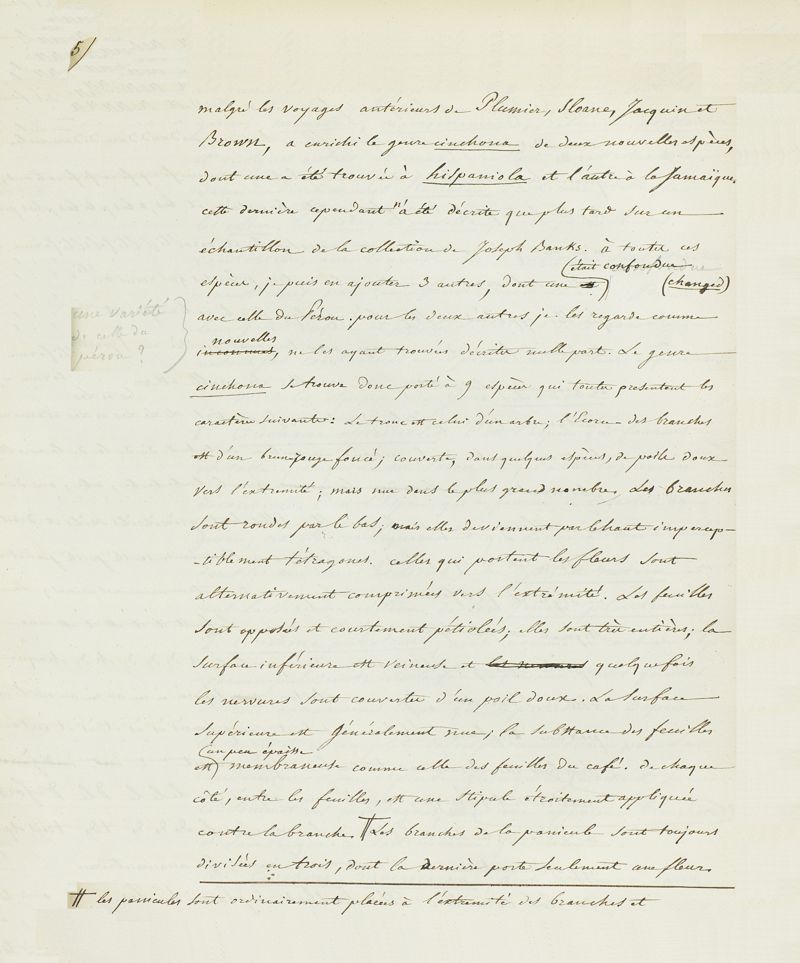 5/
malgré les voyages antérieurs de Plumier, Sloane, Jacquin et
Brown, a enrichi le genre cinchona de deux nouvelles espèces,
dont une a été trouvée à hispaniola et l'autre à la Jamaïque.
cette dernière cependant n'a été décrite que plus tard sur un
échantillon de la collection de Joseph Banks. à toutes ces
(était confondue
espèces, je puis en ajouter 3 autres, dont une (changed)
avec celle du Pérou. pour les deux autres je les regarde comme
une variété
de celle du
pérou ?
nouvelles
inconnues, ne les ayant trouvées décrites nulle part. Le genre
cinchona se trouve donc porté à 9 espèces qui toutes présentent les
caractères suivants: Le tronc est celui d'un arbre; l'Ecorce des branches
est d'un brun rouge foncé; couverte, dans quelques espèces, de poils doux
vers l'extremité; mais nue dans le plus grand nombre. Les branches
sont rondes par le bas; mais elles deviennent par le haut impercep-
-tiblement tétragones. celles qui portent les fleurs sont
alternativement comprimées vers l'éxtrémité. Les feuilles
sont opposées et courtement pétiolées; elles sont très entières; la
surface inférieure est veineuse et les nervures quelquefois
les nervures sont couvertes d'un poil doux. La surface
supérieure est généralement nue; la substance des feuilles
(un peu épaisse
est) membraneuse comme celle des feuilles du café. de chaque
côté, entre les feuilles, est une stipule étroitement appliquée
contre la branche. # Les branches de la panicule sont toujours
divisées en trois, dont la dernière porte seulement une fleur.
# les panicules sont ordinairement placées à l'éxtremité des branches et